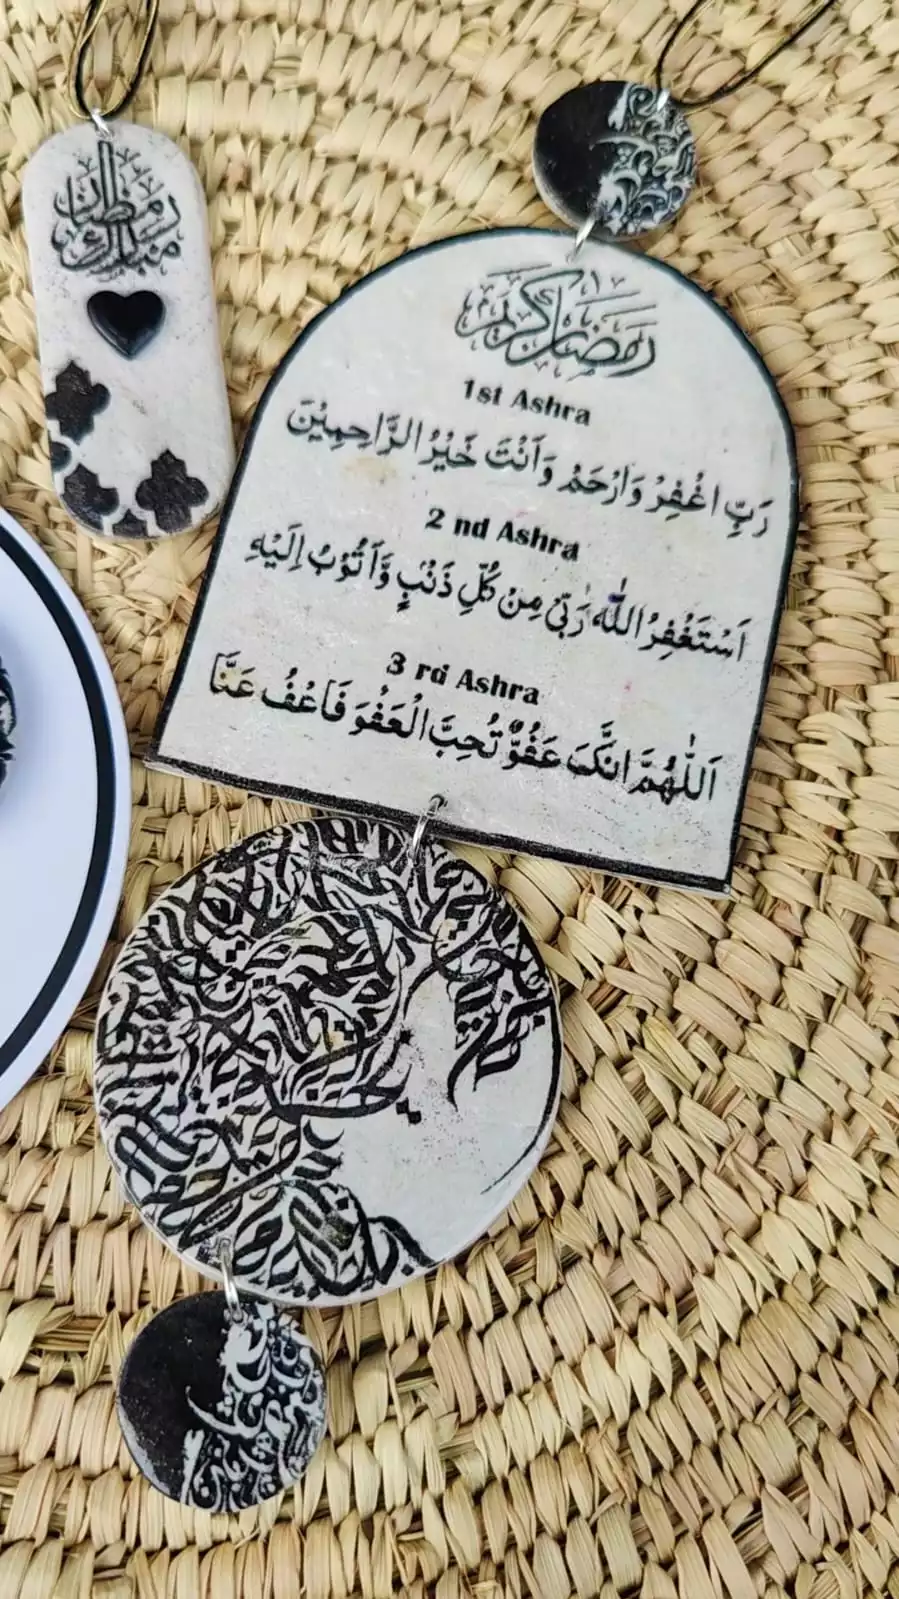 رمضان مبارك
رمضان كريم
1st Ashra
رَبِّ اغْفِرْ وَارْحَمْ وَاَنْتَ خَيْرُ الرَّاحِمِيْنَ
2 nd Ashra
اَسْتَغْفِرُ اللّٰهَ رَبِّىْ مِنْ كُلِّ ذَنْبٍ وَّاَتُوْبُ اِلَيْهِ
3 rd Ashra
اَللّٰهُمَّ اِنَّكَ عَفُوٌّ تُحِبُّ الْعَفْوَ فَاعْفُ عَنَّا